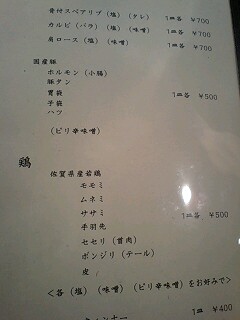 骨付スペアリブ（塩）（タレ） 1皿各 ￥700
カルビ（バラ）（塩）（味噌） 1皿各 ￥700
肩ロース（塩）（味噌） 1皿各 ￥700
国産豚
ホルモン（小腸）
豚タン
胃袋 1皿各 ￥500
子袋
ハツ
（ピリ辛味噌）
鶏
佐賀県産若鶏
モモミ
ムネミ
ササミ 1皿各 ￥500
手羽先
セセリ（首肉）
ボンジリ（テール）
皮
＜各（塩）（味噌）（ピリ辛味噌）をお好みで＞
1皿 ￥400